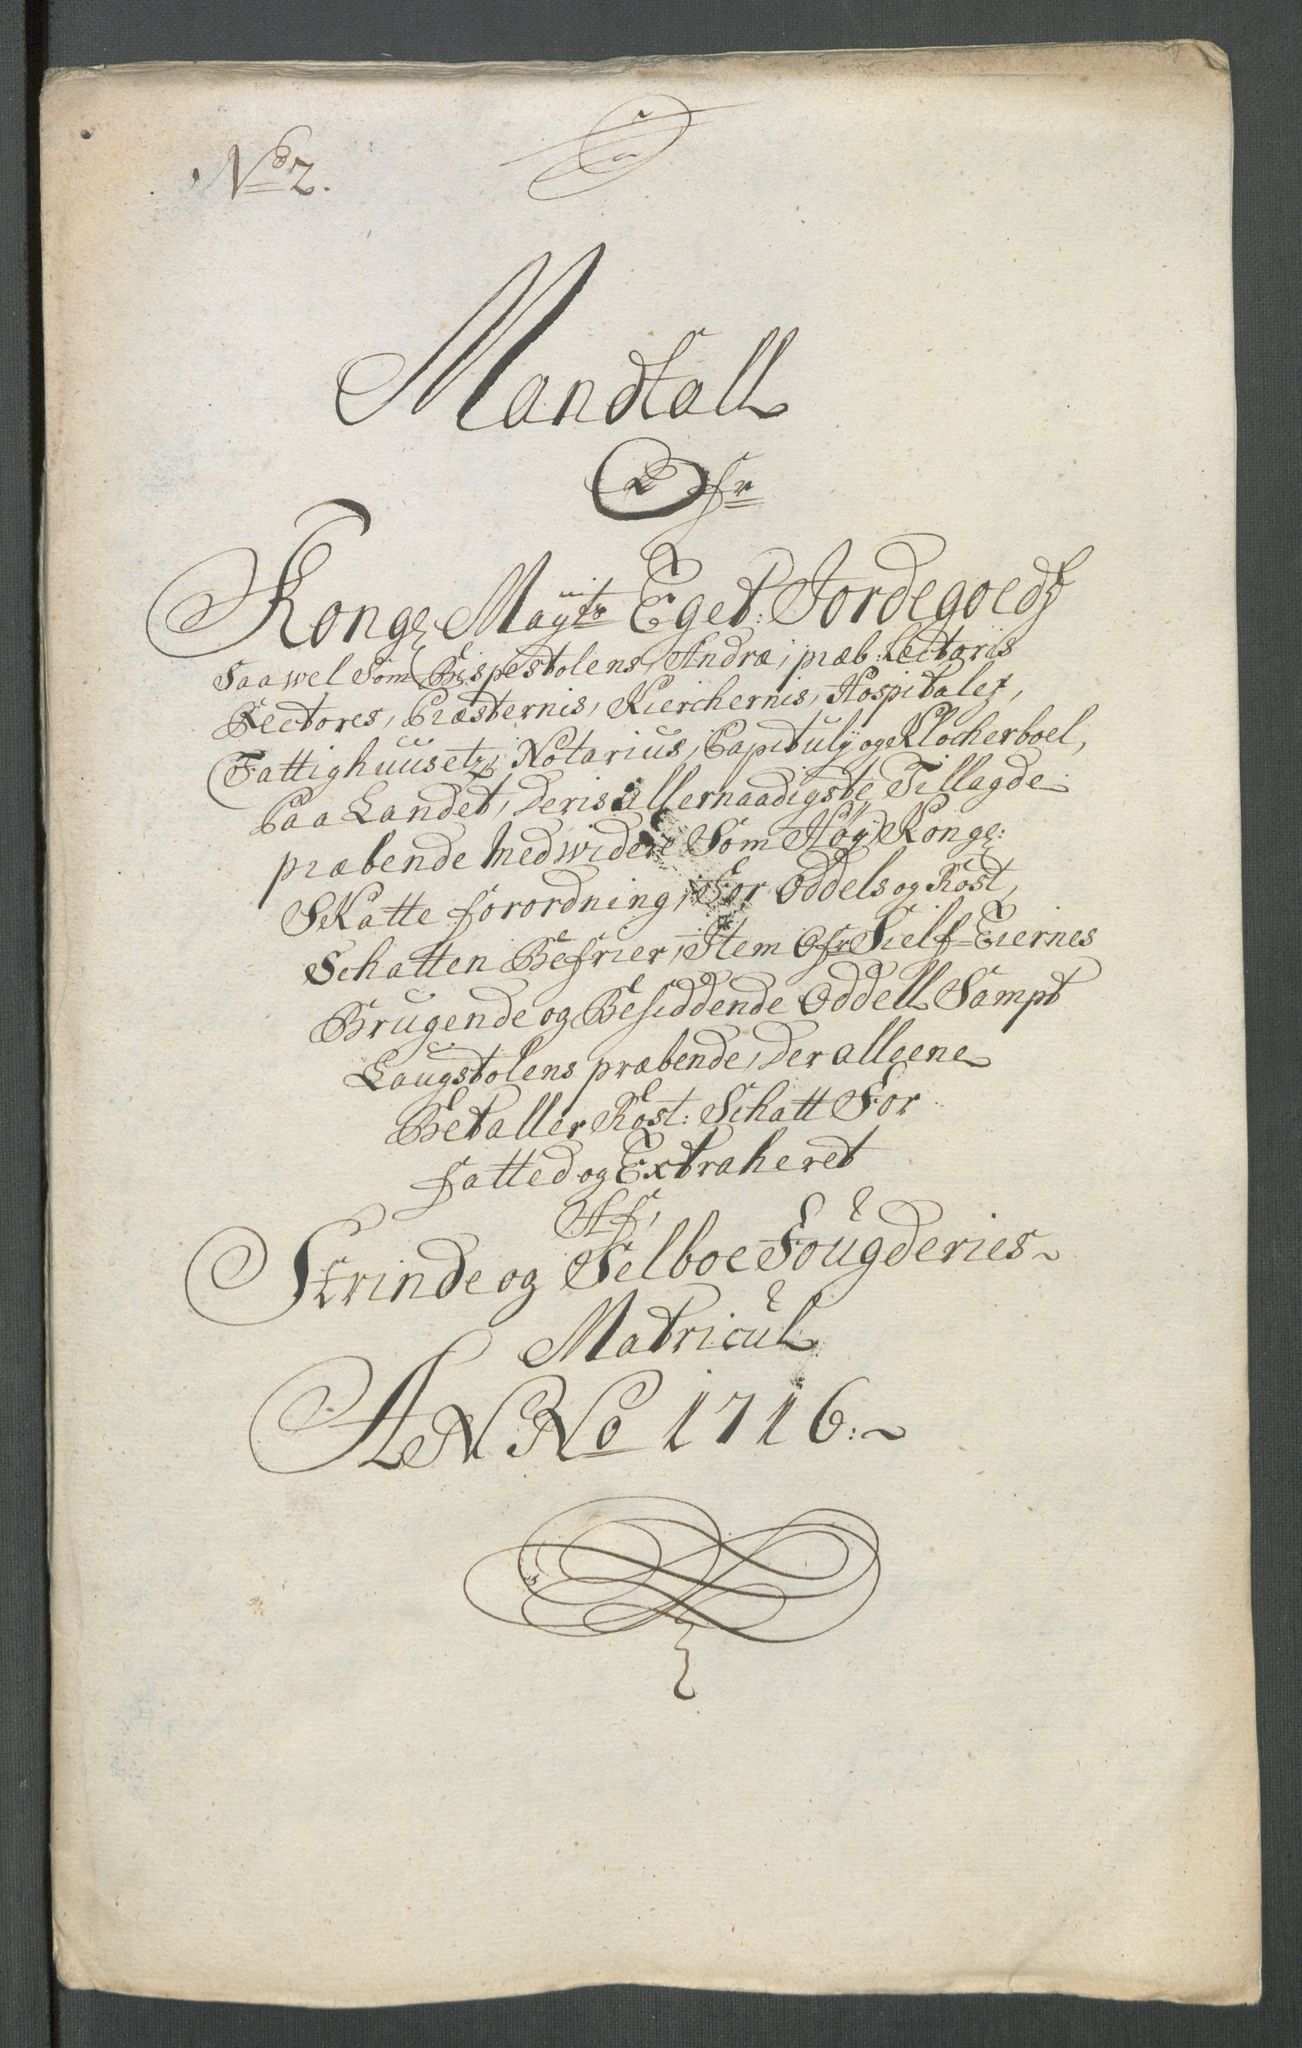 No 2.
Mandtall
Ofr
Kong: Mayts Eget: Jordegoeds
Saawel Som Bispestolens, Andræ, præb: Lectoris
Rectores, Præsternis, Kierchernis, Hospitales,
Fattighuusetz, Notarius, Capituly og Klocherboel,
Paa Landet, deris Allernaadigste Tillagde
præbende hedwidere Som Høy Kong:
Skatte forordning, For Oddels og Rost,
Schatten Befrier, Item Ofr Sielf=Eiernes
Brugende og Besiddende Oddell Sampt
Laugstolens præbende, der alleene
Betaller Rost: Schatt For
fatted og Extraheret
Af,
Strinde og Selboe Fougderies
Matricul
ANNo 1716: